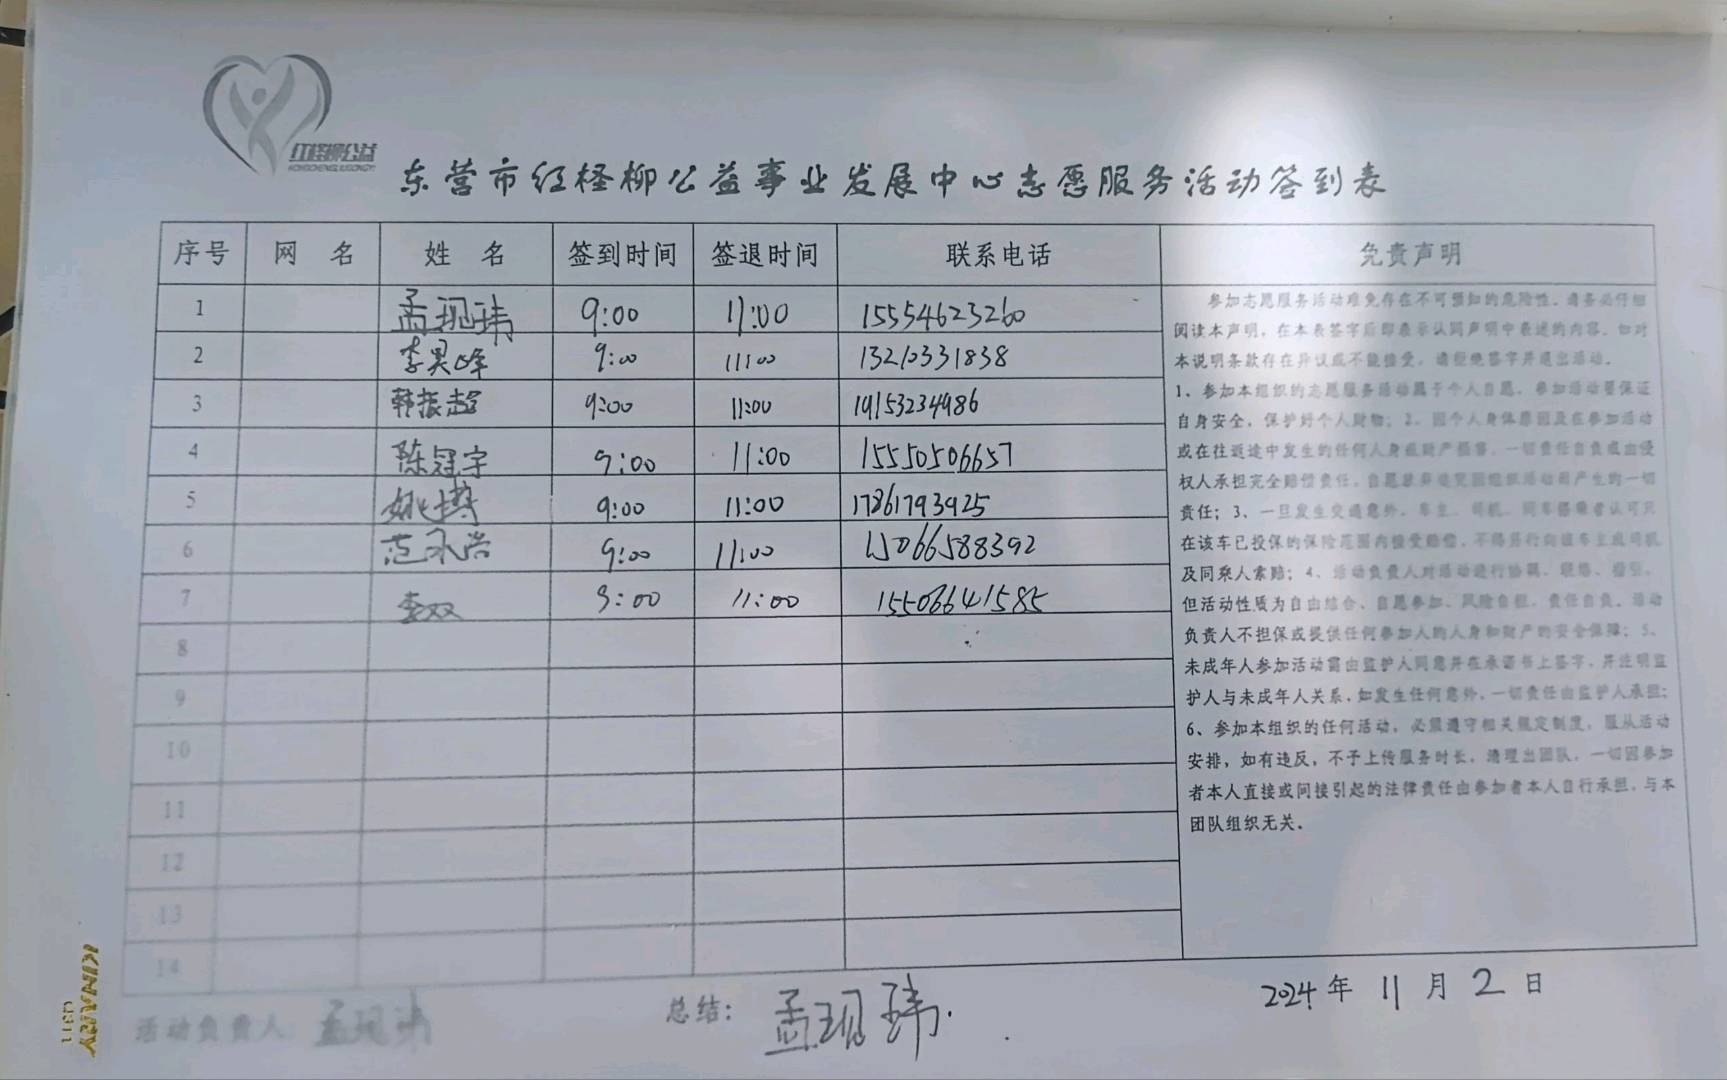 红柽柳公益
HONGCHENGLIUGONGYI
东营市红柽柳公益事业发展中心志愿服务活动签到表
序号 网 名 姓 名 签到时间 签退时间 联系电话 免责声明
1 孟现玮 9:00 11:00 15554623260
2 李昊峰 9:00 11:00 13210331838
3 韩振超 9:00 11:00 19153234986
4 陈冠宇 9:00 11:00 15550506657
5 姚博 9:00 11:00 17861793925
6 范永浩 9:00 11:00 15066588392
7 李双 9:00 11:00 15506641585
8
9
10
11
12
13
14
参加志愿服务活动难免存在不可预知的危险性。请务必仔细
阅读本声明，在本表签字后即表示认同声明中表述的内容。如对
本说明条款存在异议或不能接受，请拒绝签字并退出活动。
1、参加本组织的志愿服务活动属于个人自愿，参加活动要保证
自身安全，保护好个人财物；2、因个人身体原因及在参加活动
或在往返途中发生的任何人身或财产损害，一切责任自负或由侵
权人承担完全赔偿责任，自愿放弃追究团组织活动而产生的一切
责任；3、一旦发生交通意外，车主、司机、同车搭乘者认可只
在该车已投保的保险范围内接受赔偿，不得另行向该车主或司机
及同乘人索赔；4、活动负责人对活动进行协调、联络、指引，
但活动性质为自由结合、自愿参加、风险自担、责任自负。活动
负责人不担保或提供任何参加人的人身和财产的安全保障；5、
未成年人参加活动需由监护人同意并在承诺书上签字，并注明监
护人与未成年人关系，如发生任何意外，一切责任由监护人承担；
6、参加本组织的任何活动，必须遵守相关规定制度，服从活动
安排，如有违反，不予上传服务时长，清理出团队，一切因参加
者本人直接或间接引起的法律责任由参加者本人自行承担，与本
团队组织无关。
活动负责人 孟现玮 总结： 孟现玮. 2024年 11月 2日
KINARY